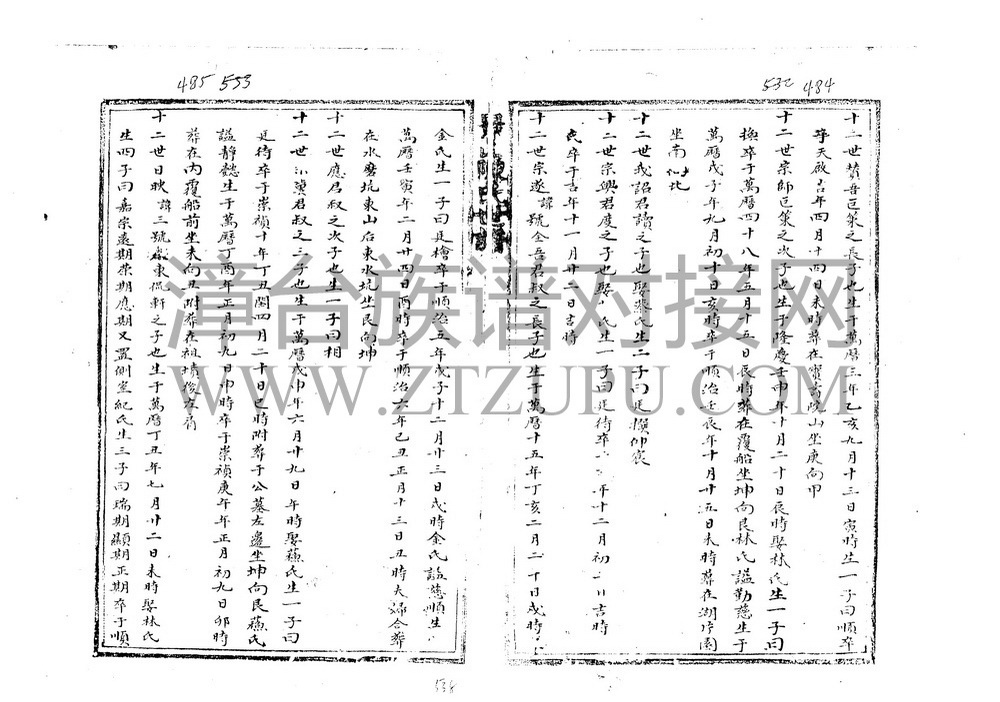 532 484
十二世贊吾巨策之長子也生于萬曆三年乙亥九月十三日寅時生一子曰順卒
卒天啟吉年四月十四日未時葬在寶院山坐庚向甲
十二世宗師巨策之次子也生于隆慶壬申年十月二十日辰時娶林氏生一子曰
換卒于萬曆四十八年五月廿五日辰時葬在覆船坐坤向艮林氏謚勤慈生于
萬曆戊子年九月初十日亥時卒于順治壬辰年十月廿五日未時葬在湖片園
坐南北
十二世我詔君讀之子也娶蔡氏生二子曰廷撰仰宸
十二世宗興君度之子也娶氏生一子曰廷待卒年十二月初日吉時
氏卒于吉年十一月廿二日吉時
十二世宗遂諱號全吾君叔之長子也生于萬曆十五年丁亥二月二十日戌時
485 553
金氏生一子曰廷檜卒于順治五年戊子十二月廿三日戌時金氏謚慈順生
萬曆壬寅年二月廿四日酉時卒于順治六年己丑正月十三日丑時夫婦合葬
在水磨坑東山后東水坑坐艮向坤
十二世應君叔之次子也生一子曰相
十二世沂濱君叔之三子也生于萬曆戊申年六月廿九日午時娶蘇氏生一子曰
廷待卒于崇禎十年丁丑閏四月二十日巳時附葬于公墓左邊坐坤向艮蘇氏
謚靜懿生于萬曆丁酉年正月初九日申時卒于崇禎庚午年正月初九日卯時
葬在內覆船前坐未向丑附葬在祖墳後左肩
十二世日映諱三號東偘軒之子也生于萬曆丁丑年七月廿二日未時娶林氏
生四子曰嘉崇遠期崇期應期又置側室紀氏生三子曰瑞期顯期正期卒于順
538
漳台族谱对接网
WWW.ZTZUPU.COM